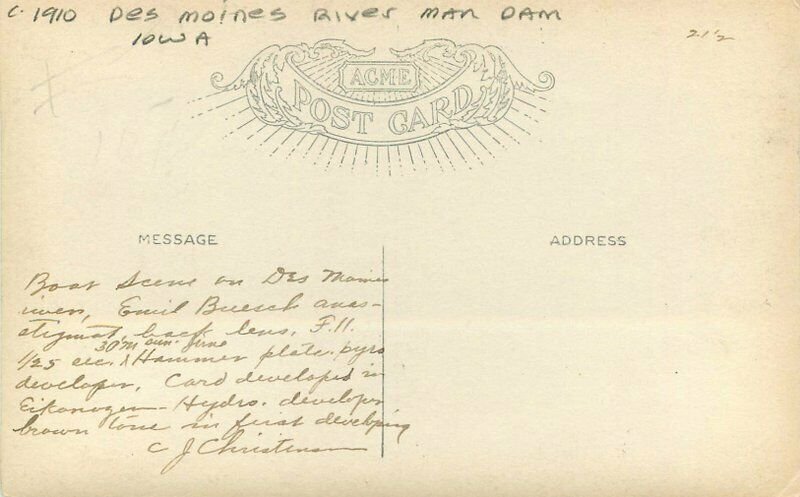 c. 1910 DES MOINES RIVER MAN DAM
IOWA
21½
ACME
POST CARD
MESSAGE
ADDRESS
Boat Scene on Des Moines
river, Emil Buesch anas-
stigmat back lens. F.11.
30 m sun. June
1/25 sec. Hammer plate. pyro
developer. Card developed in
Eikonogen - Hydro. developer
brown tone in first developing
C J Christensen